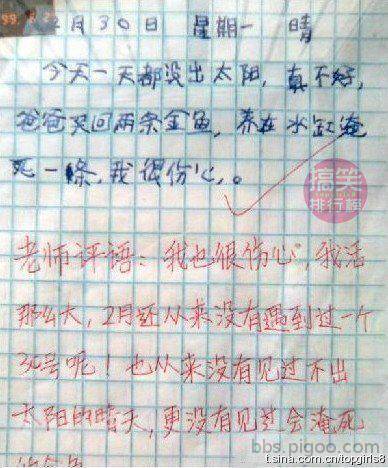 2月30日 星期一 晴
今天一天都没出太阳，真不好，
爸爸买回两条金鱼，养在水缸淹
死一條，我很伤心。
搞笑
排行榜
老师评语：我也很伤心，我活
那么大，2月还从来没有遇到过一个
30号呢！也从来没有见过不出
太阳的晴天，更没有见过会淹死
的金鱼
bbs.piqoo.com
t.sina.com.cn/topgirls8